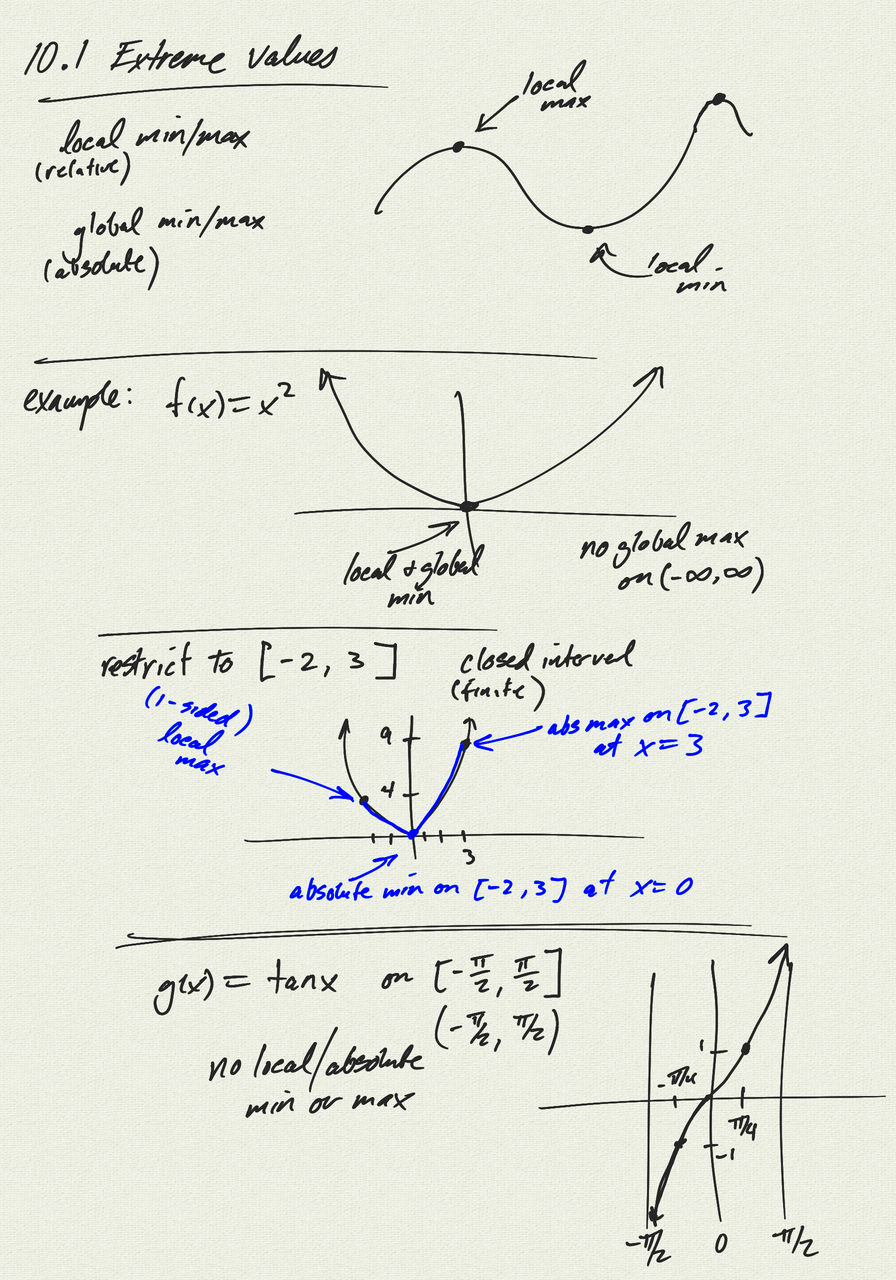 10.1 Extreme Values
local min/max
(relative)
global min/max
(absolute)
local
max
local
min
example: f(x) = x²
local + global
min
no global max
on (-∞, ∞)
restrict to [-2, 3]
closed interval
(finite)
(1-sided)
local
max
abs max on [-2, 3]
at x = 3
9
4
3
absolute min on [-2, 3] at x = 0
g(x) = tan x on [-π/2, π/2]
(-π/2, π/2)
no local/absolute
min or max
1
-π/4
π/4
-1
-π/2
0
π/2